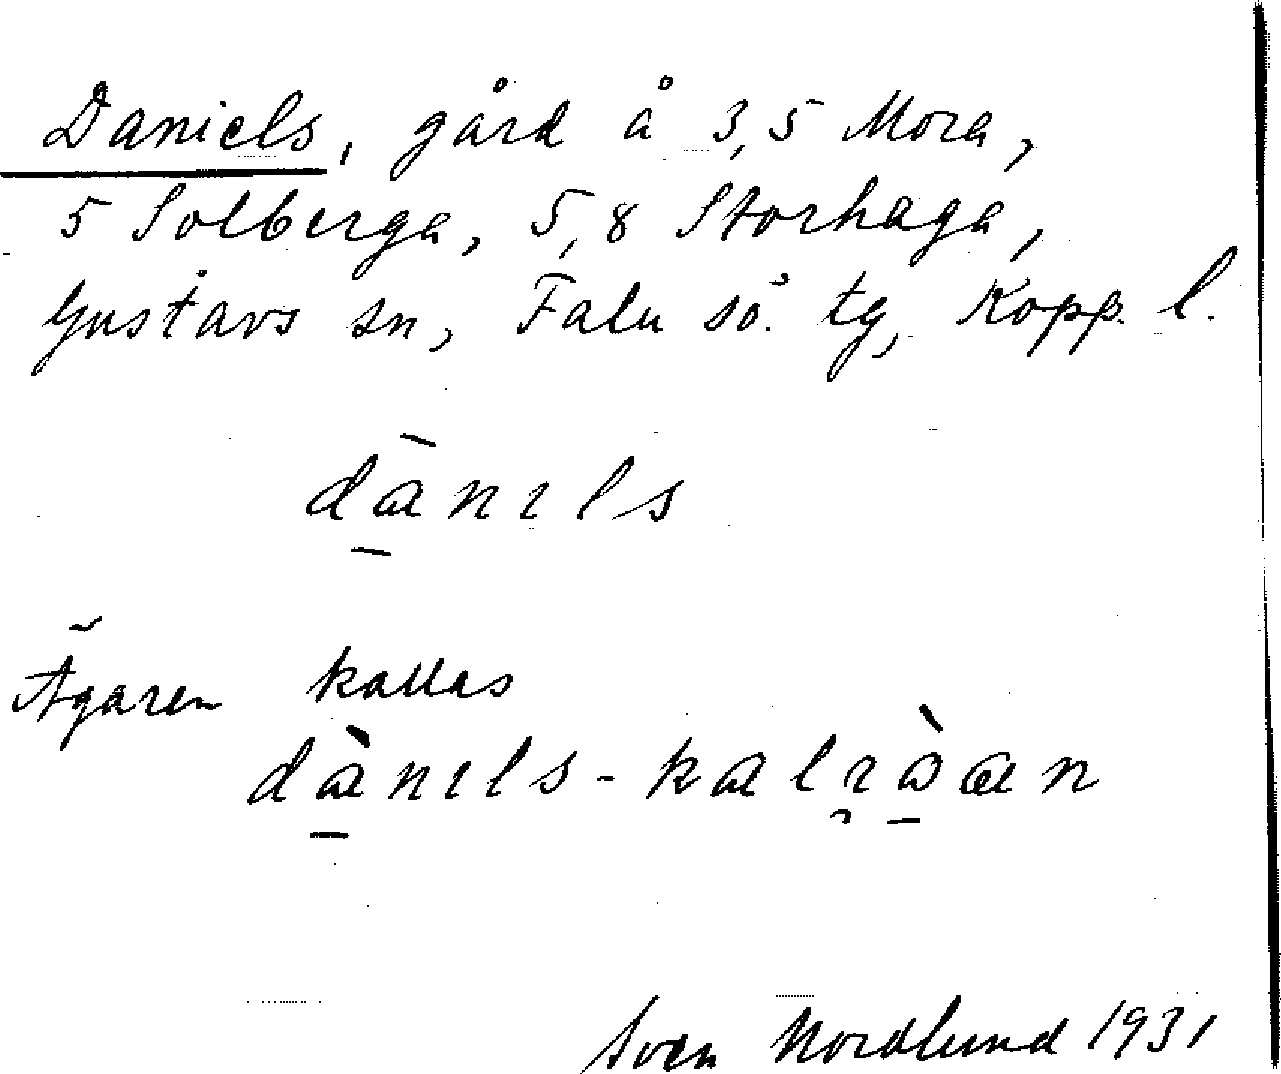 Daniels, gård å 3,5 Mora,
5 Solberga, 5,8 Storhaga,
Gustavs sn, Falu sö. tg, Kopp. l.
dànɪls
Ägaren kallas
dànɪls-
Sven Nordlund 1931